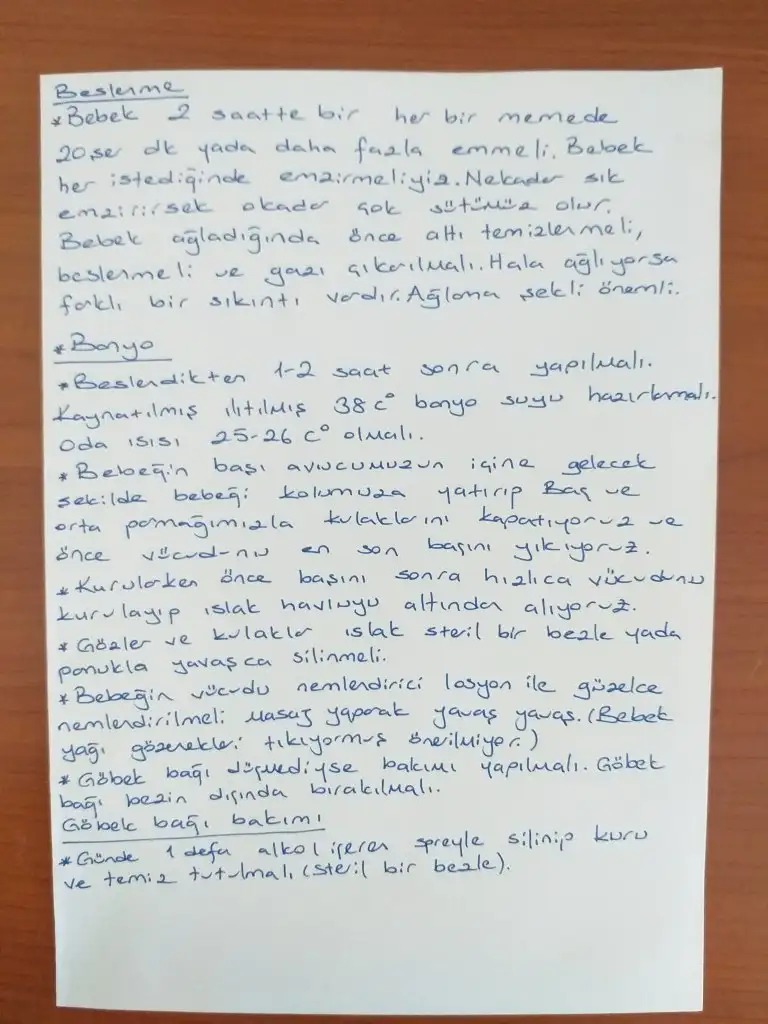 Beslenme
* Bebek 2 saatte bir her bir memede
20şer dk yada daha fazla emmeli. Bebek
her istediğinde emzirmeliyiz. Nekadar sık
emzirirsek okadar çok sütümüz olur.
Bebek ağladığında önce altı temizlenmeli,
beslenmeli ve gazı çıkarılmalı. Hala ağlıyorsa
farklı bir sıkıntı vardır. Ağlama şekli önemli.
* Banyo
* Beslendikten 1-2 saat sonra yapılmalı.
Kaynatılmış ılıtılmış 38 c° banyo suyu hazırlamalı.
Oda ısısı 25-26 c° olmalı.
* Bebeğin başı avucumuzun içine gelecek
şekilde bebeği kolumuza yatırıp Baş ve
orta parmağımızla kulaklarını kapatıyoruz ve
önce vücudunu en son başını yıkıyoruz.
* Kurularken önce başını sonra hızlıca vücudunu
kurulayıp ıslak havluyu altından alıyoruz.
* Gözler ve kulaklar ıslak steril bir bezle yada
pamukla yavaşca silinmeli.
* Bebeğin vücudu nemlendirici losyon ile güzelce
nemlendirilmeli masaj yaparak yavaş yavaş. (Bebek
yağı gözenekleri tıkıyormuş önerilmiyor.)
* Göbek bağı düşmediyse bakımı yapılmalı. Göbek
bağı bezin dışında bırakılmalı.
Göbek bağı bakımı
* Günde 1 defa alkol içeren spreyle silinip kuru
ve temiz tutulmalı (steril bir bezle).